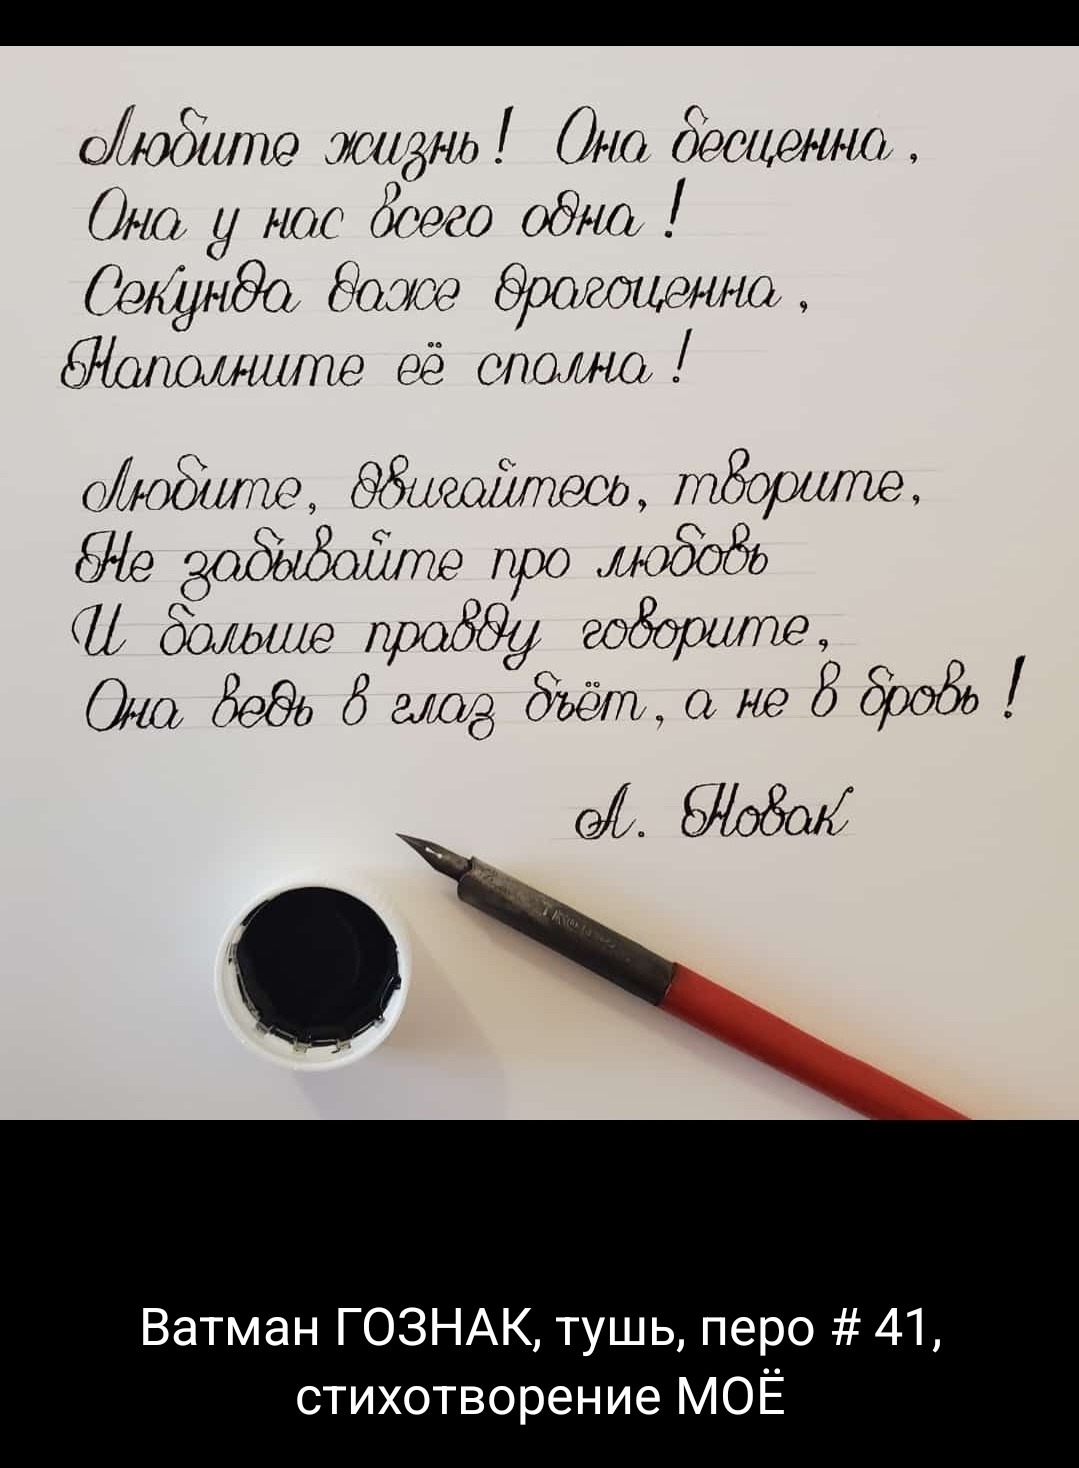 Любите жизнь! Она бесценна,
Она у нас всего одна!
Секунда даже драгоценна,
Наполните её сполна!
Любите, двигайтесь, творите,
Не забывайте про любовь
И больше правды говорите,
Она ведь в глаз бьёт, а не в бровь!
А. Новак
Ватман ГОЗНАК, тушь, перо # 41,
стихотворение МОЁ